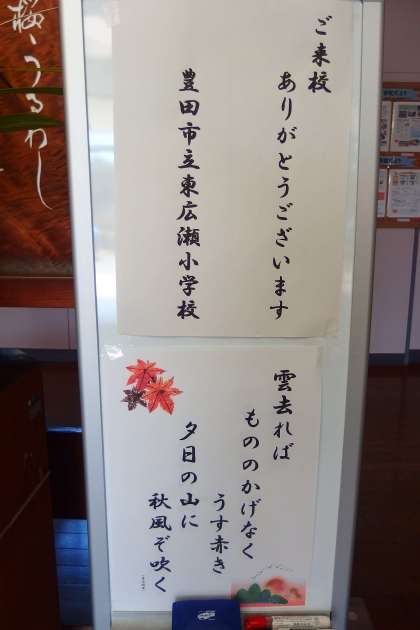 ご来校
ありがとうございます
豊田市立東広瀬小学校
雲去れば
もののかげなく
うす赤き
夕日の山に
秋風ぞ吹く
桜、うるわし